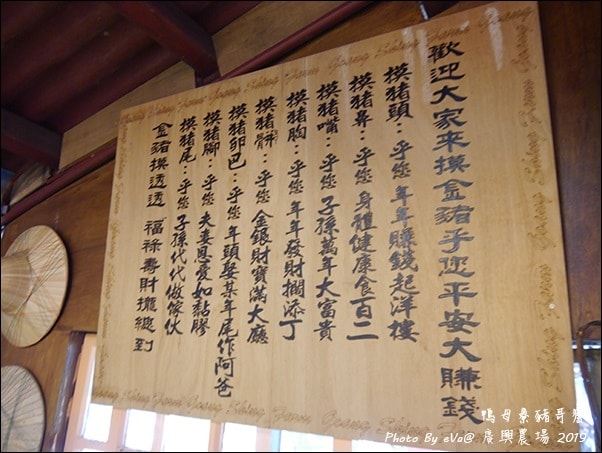 歡迎大家來摸金豬乎您平安大賺錢
摸豬頭：乎您 年年賺錢起洋樓
摸豬鼻：乎您 身體健康食百二
摸豬嘴：乎您 子孫萬年大富貴
摸豬胸：乎您 年年發財擱添丁
摸豬脾：乎您 金銀財寶滿大廳
摸豬卵巴：乎您 年頭娶某年尾作阿爸
摸豬腳：乎您 夫妻恩愛如黏膠
摸豬尾：乎您 子孫代代做傢伙
金豬摸透透 福祿壽財攏總到
鴨母寮豬哥詹
Photo By eVa@ 廣興農場 2019